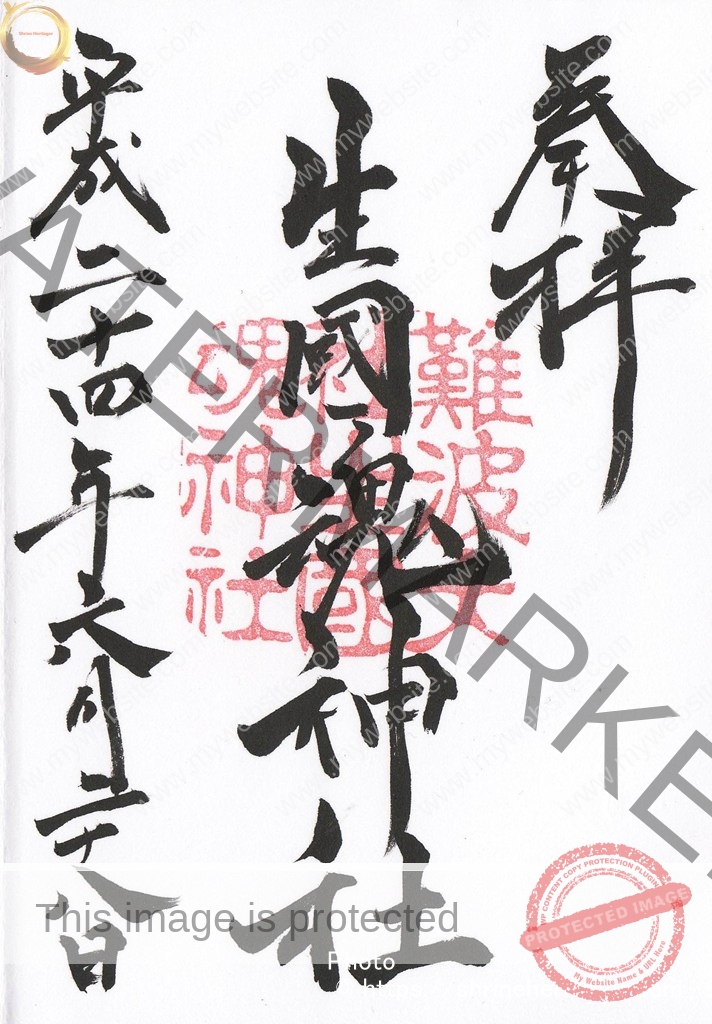 奉拝
生國魂神社
平成二十四年六月二十八日
難波大
社生國
魂神社
WATERMARKED
www.mywebsite.com
This image is protected
Photo
WP CONTENT COPY PROTECTION PLUGIN
PROTECTED IMAGE
My Website Name & URL Here